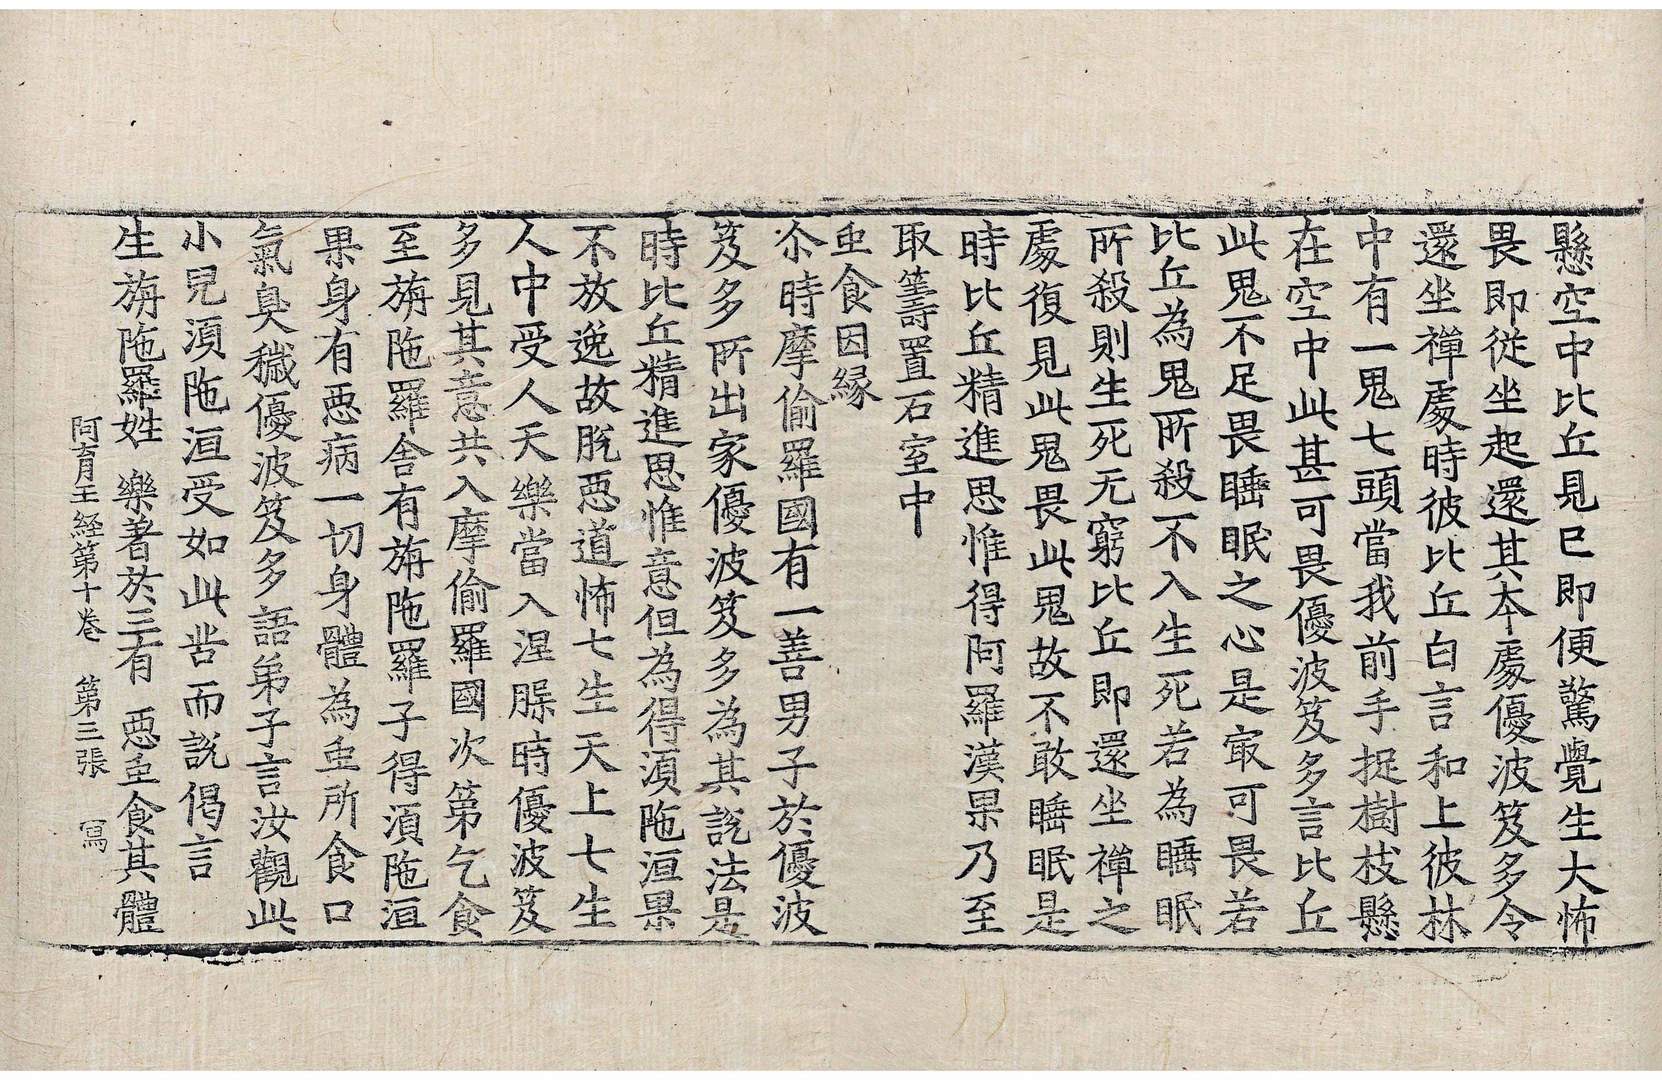 懸空中比丘見已即便驚覺生大怖
畏即從坐起還其本處優波笈多令
還坐禪處時彼比丘白言和上彼林
中有一鬼七頭當我前手捉樹枝懸
在空中此甚可畏優波笈多言比丘
此鬼不足畏睡眠之心是㝡可畏若
比丘為鬼所殺不入生死若為睡眠
所殺則生死无窮比丘即還坐禪之
處復見此鬼畏此鬼故不敢睡眠是
時比丘精進思惟得阿羅漢果乃至
取籌置石室中
䖝食因緣
尒時摩偷羅國有一善男子於優波
笈多所出家優波笈多為其說法是
時比丘精進思惟意但為得湏陁洹果
不放逸故脫惡道怖七生天上七生
人中受人天樂當入涅槃時優波笈
多見其意共入摩偷羅國次第乞食
至旃陁羅舍有旃陁羅子得湏陁洹
果身有惡病一切身體為䖝所食口
氣臭穢優波笈多語弟子言汝觀此
小兒湏陁洹受如此苦而說偈言
生旃陁羅姓　樂著於三有　惡䖝食其體
阿育王経第十卷　第三張　寫